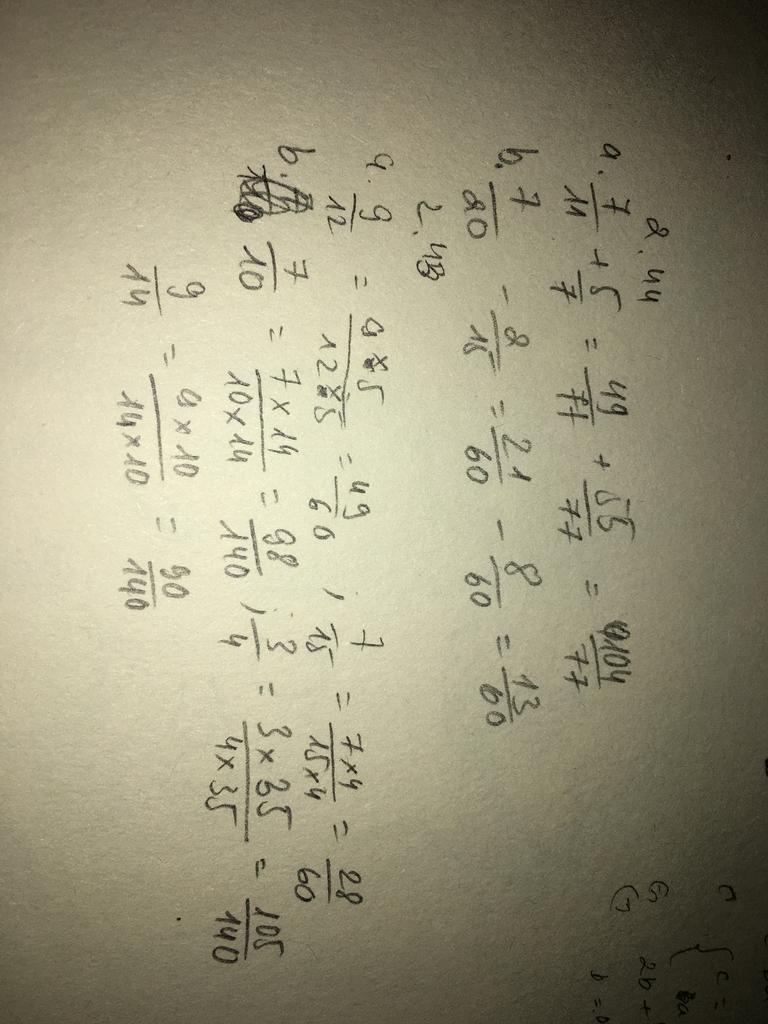 2.44
a. 7/11 + 5/7 = 49/77 + 55/77 = 104/77
b. 7/20 - 2/15 = 21/60 - 8/60 = 13/60
2.43
a. 9/12 = 9x5/12x5 = 49/60 , 7/15 = 7x4/15x4 = 28/60
b. 7/10 = 7x14/10x14 = 98/140 ; 3/4 = 3x35/4x35 = 105/140
9/14 = 9x10/14x10 = 90/140
c =
2b +